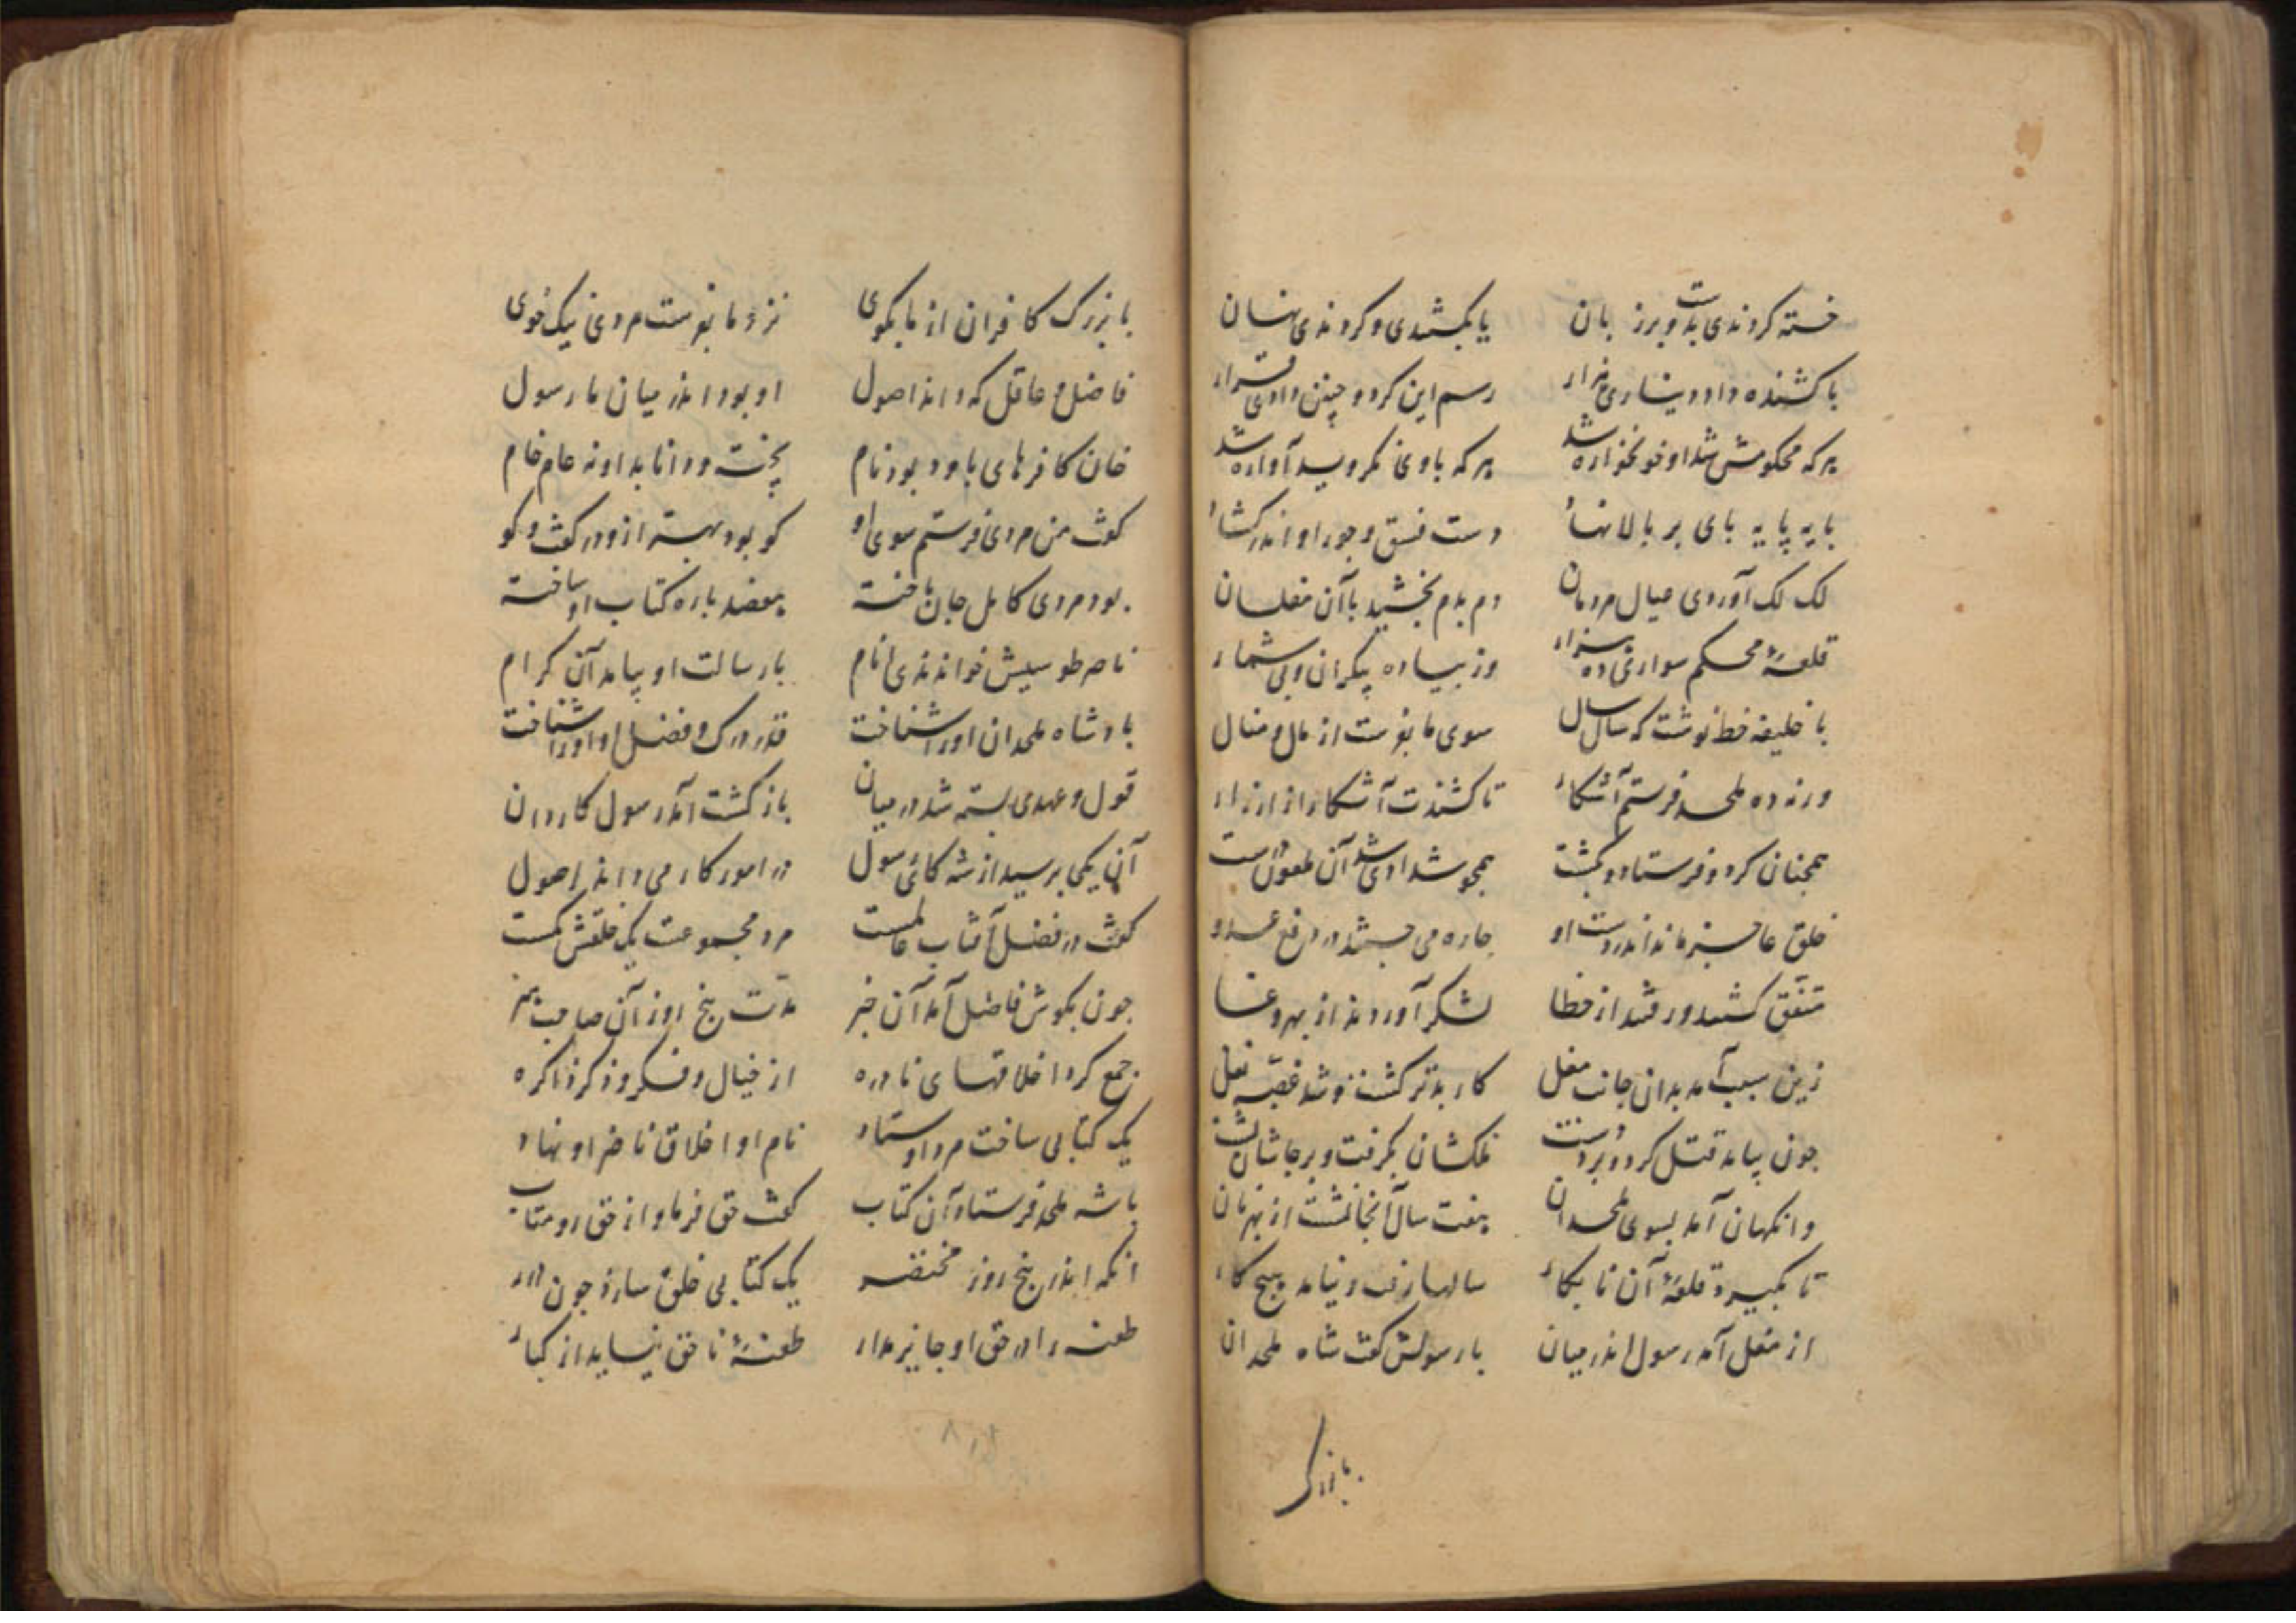 خسته کردندی بدست و برز بان یا بکشتندی و کردندی نهان
با کشنده داد دیناری هزار رسم این کرد و چنین دادی قرار
هر که محکومش شد او خونخواره شد هر که باوی نکروید آواره شد
بایه پایه بای بر بالا نهاد دست فسق و جور او اندر کشاد
لک لک آوردی عیال مردمان دم بدم بخشید با آن مفلسان
قلعهٔ محکم سواری ده هزار وز بیاده بیکران و بی شمار
با خلیفه خط نوشت که سال سال سوی ما بفرست از مال و منال
ورنه ده ملحد فرستم آشکار تا کشندت آشکارا زار زار
همجنان کرد و فرستاد و بکشت
خلق عاجز ماند اندر دست او جاره می جستند در دفع عدو
متفق کشتند و رفتند از خطا لشکر آوردند از بهر وغا
زین سبب آمد بدان جانب مغل کار بدتر کشت و شد غصه
جون بیامد قتل کرد و برد دست ملکشان بگرفت و بر جاشان نشست
وانکهان آمد بسوی ملحدان هفت سال آنجا نشست از بهر نان
تا بگیرد قلعهٔ آن نابکار سالها رفت و نیامد هیج کار
از مغل آمد رسول اندر میان با رسولش گفت شاه ملحدان
با بزرگ
با بزرک کافران از ما بکوی نزد ما بفرست مردی نیک خوی
فاضل و عاقل که داند اصول او بود اندر میان ما رسول
خان کافرهای باود بود نام پخته و دانا بد او نه عام خام
کفت من مردی فرستم سوی او کو بود بهتر ازو در کفت و کو
بود مردی کامل جان باخته هفصد باره کتاب او ساخته
ناصر طوسیش خواندندی انام با رسالت او بیامد آن کرام
بادشاه ملحدان او را شناخت قدر درک و فضل او را شناخت
قول و عهدی بسته شد در میان باز کشت آمد رسول کاردان
آن یکی برسید از شه کای رسول در امور کار می داند اصول
کفت در فضل آفتاب عالمست مرد مجموعست یک خلقش کمست
جون بکوش فاضل آمد آن خبر مدت پنج روز آن صاحب هنر
جمع کرد اخلاقهای نادره از خیال و فکر و ذکر ذاکره
یک کتابی ساخت مرد اوستاد نام او اخلاق ناصر او نهاد
با شه ملحد فرستاد آن کتاب کفت حق فرما و از حق رو متاب
انکه اندر پنج روز مختصر یک کتابی خلق سازد جون درر
طعنه را در حق او جایز مدار طعنهٔ ناحق نیاید از کبار